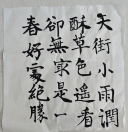 天街小雨潤
酥草色遙看
卻無㝡是一
春好處絕勝